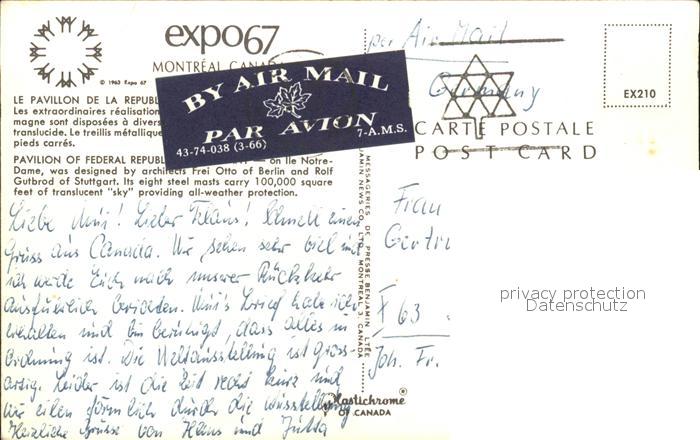 expo67
MONTRÉAL CANADA
© 1963 Expo 67
LE PAVILLON DE LA REPUBL
Les extraordinaires réalisation
magne sont disposées à divers
translucide. Le treillis métallique
pieds carrés.
PAVILION OF FEDERAL REPUBL
— on Ile Notre-
Dame, was designed by architects Frei Otto of Berlin and Rolf
Gutbrod of Stuttgart. Its eight steel masts carry 100,000 square
feet of translucent "sky" providing all-weather protection.
BY AIR MAIL
PAR AVION
43-74-038 (3-66)
7-A.M.S.
Liebe Uni! Lieber Klaus! Schnell einen
Gruss aus Canada. Wir sehen sehr viel und
ich werde Euch nach unserer Rückkehr
ausführlich berichten. Uni's Brief habe ich
erhalten und bin beruhigt, dass alles in
Ordnung ist. Die Weltausstellung ist gross-
artig. Leider ist die Zeit recht kurz und
wir eilen förmlich durch die Ausstellung
Herzliche Grüsse von Hans und Jutta
MESSAGERIES DE PRESSE BENJAMIN LTÉE
BENJAMIN NEWS CO. LTD., MONTREAL 3, CANADA
per Air Mail
Germany
EX210
CARTE POSTALE
POST CARD
Frau
Gertru
X 63
Joh. Fr.
Plastichrome®
OF CANADA
privacy protection
Datenschutz